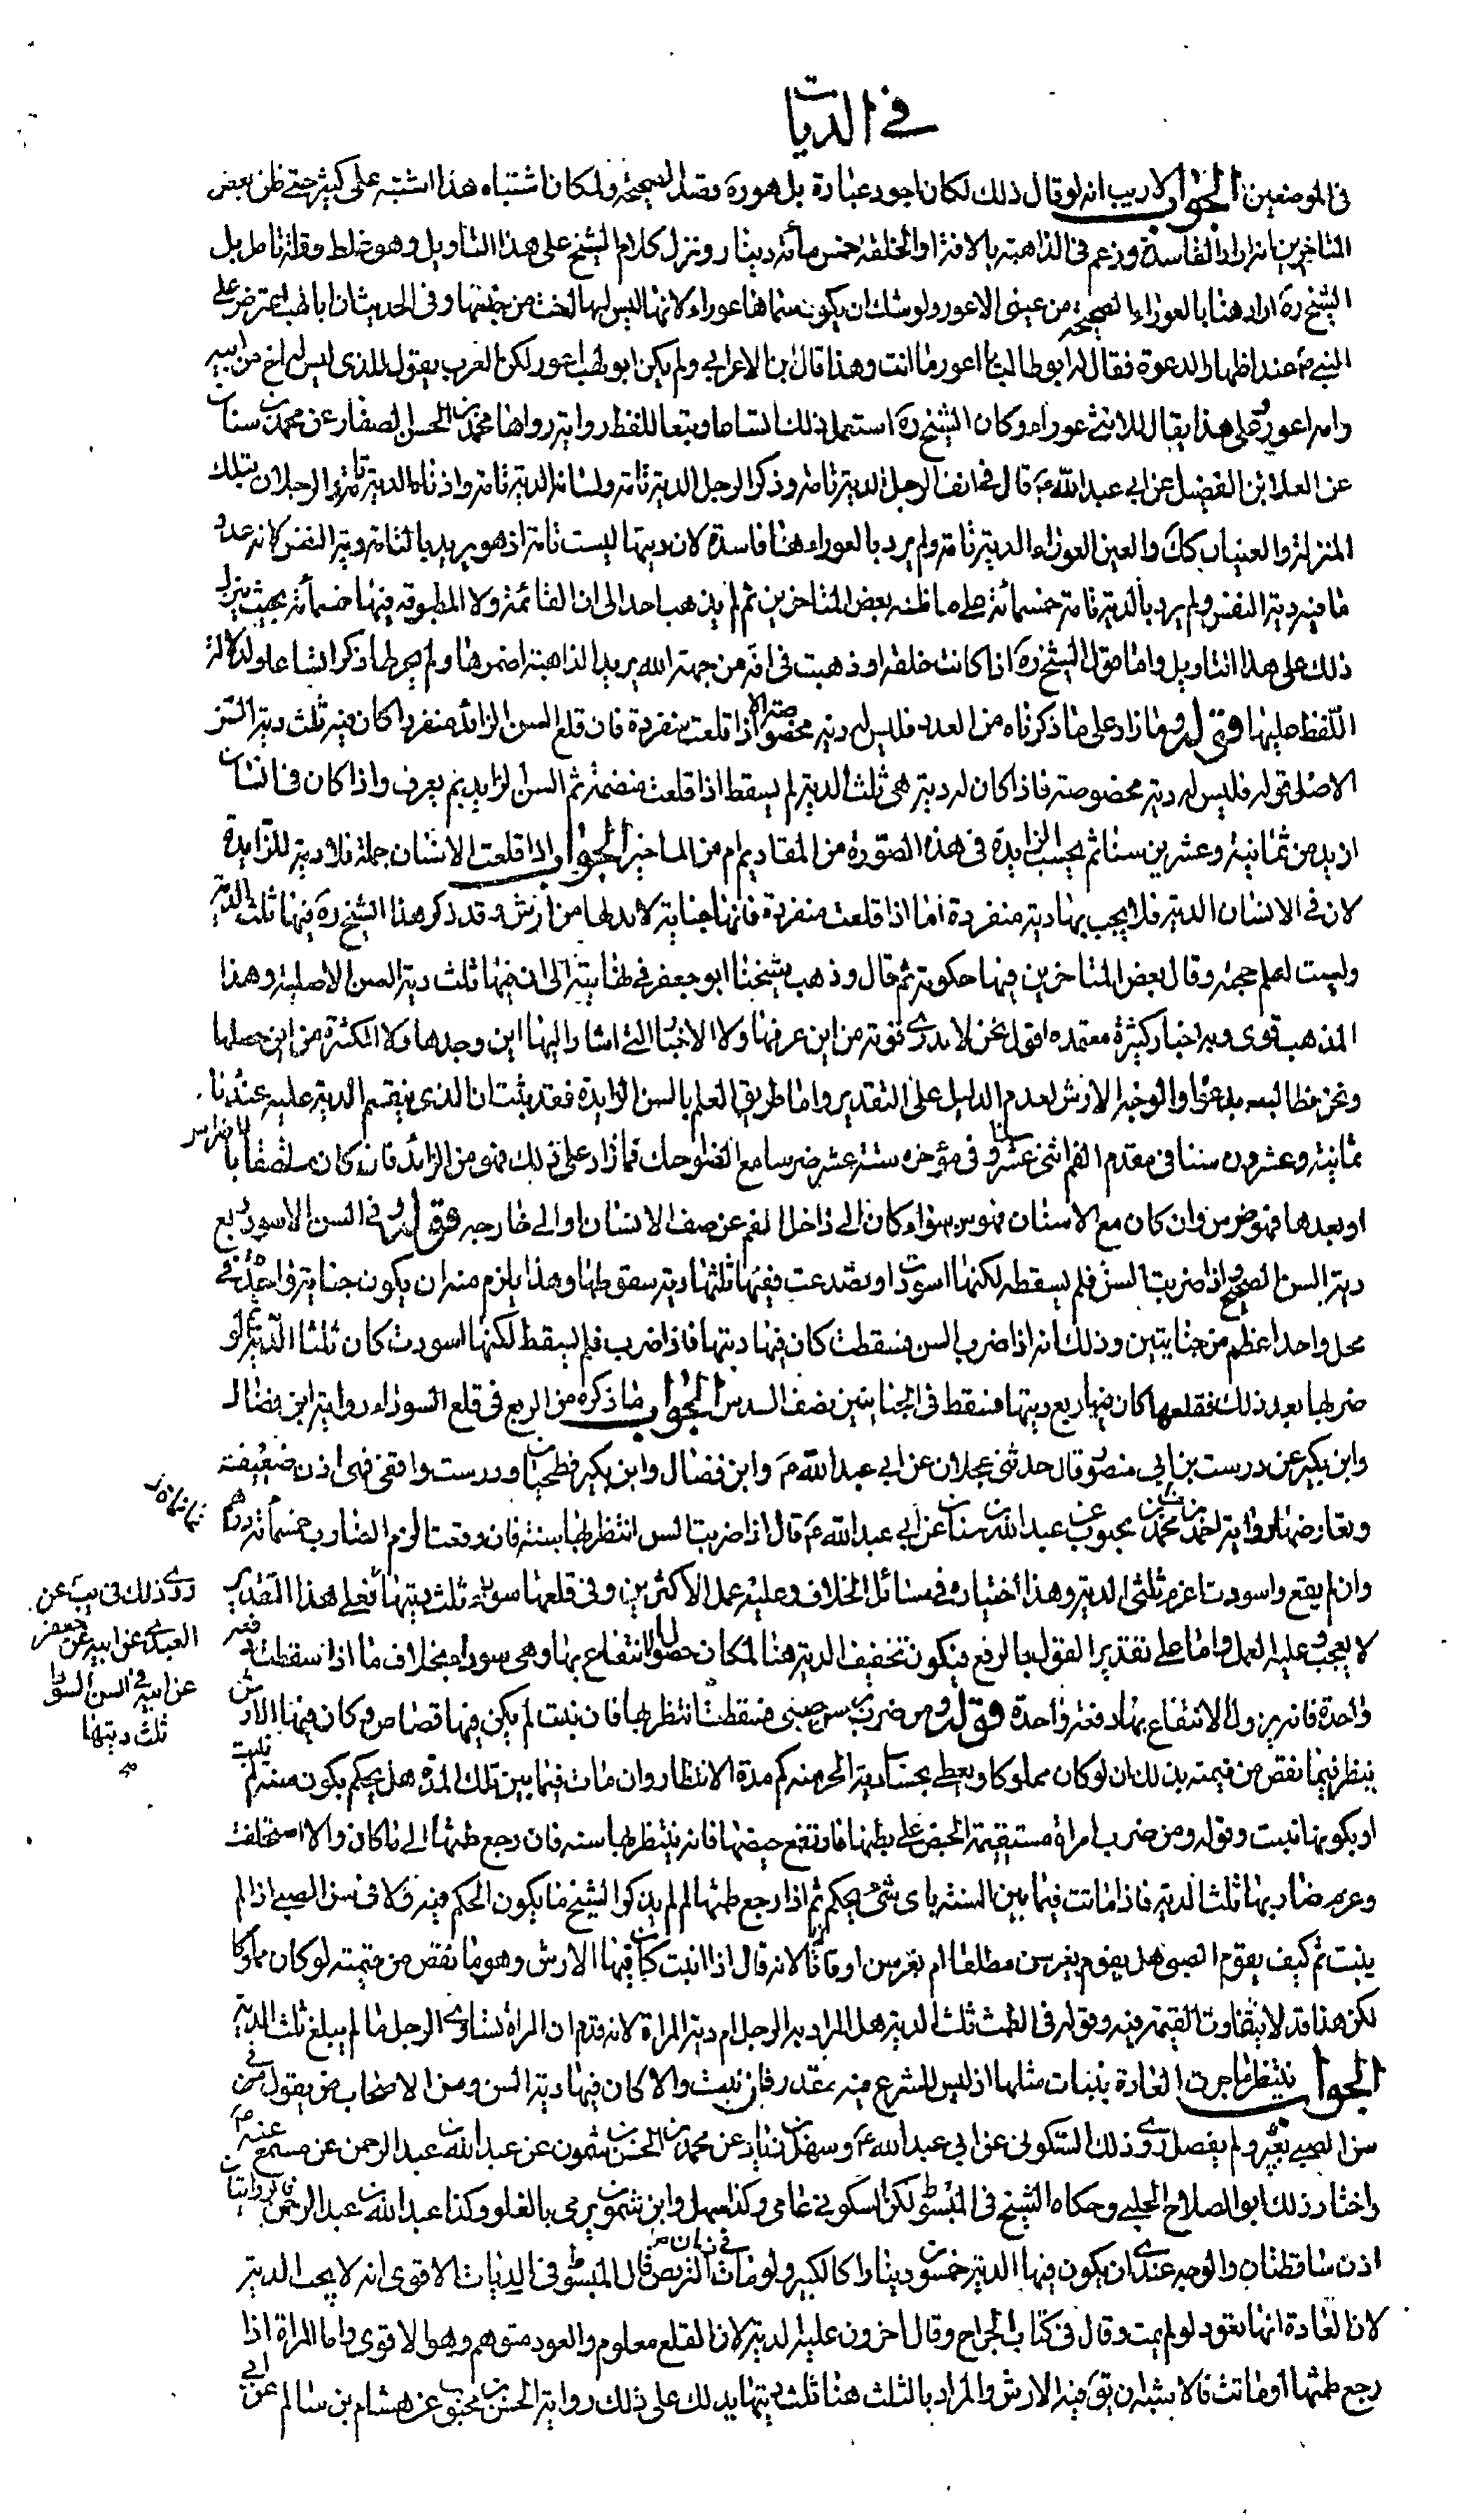 في الديات
في الموضعين الجواب لا ريب انه لو قال ذلك لكان اجود عبارة بل هو ره قصد الصحيحة ولمكان اشتباه هذا اشتبه على كثير حتى ظن بعض
المتاخرين انه اراد الفاسدة وزعم في الذاهبة بالافة او الخلقة خمس مأة دينار ونزل كلام الشيخ على هذا التأويل وهو غلط وقلة تامل بل
الشيخ ره اراد هنا بالعوراء الصحيحة من عيني الاعور ولو شك ان يكون سماها عوراء لانها ليس لها اخت من جنسها وفي الحديث ان ابا لهب اعترض على
النبي ص عند اظهار الدعوة فقال له ابو طالب يا اعور ما انت وهذا قال ابن الاعرابي ولم يكن ابو لهب اعور لكن العرب يقول للذي ليس له اخ من ابيه
وامه اعور فعلى هذا يقال للانثى عوراء وكان الشيخ ره استعمل ذلك اتساعا وتبعا للفظ رواية رواها محمد بن الحسن الصفار عن محمد بن سنان
عن العلا بن الفضيل عن ابي عبد الله ع قال في انف الرجل الدية تامة وذكر الرجل الدية تامة ولسانه الدية تامة واذناه الدية تامة والرجلان بتلك
المنزلة والعينان كك والعين العوراء الدية تامة ولم يرد بالعوراء هنا فاسدة لان ديتها ليست تامة اذ هو يريد بالتامة دية النفس لانه عدد
ما فيه دية النفس ولم يرد بالدية تامة خمسمائة على ما ظنه بعض المتاخرين ثم لم يذهب احد الى ان القائمة ولا المطبوقة فيها خمسمأة بحيث ينزل
ذلك على هذا التاويل واما قول الشيخ ره اذا كانت خلقة او ذهبت في افة من جهة الله يريد الذاهبة اضمرها ولم يجر لها ذكر اتساعا ولدلالة
اللفظ عليها قوله وما زاد على ما ذكرناه من العدد فليس له دية مخصوصة الا اذا قلعت منفردة فان قلع السن الزائد منفردا كان فيه ثلث دية السن
الاصلي قوله فليس له دية مخصوصة فاذا كان له دية هي ثلث الدية لم يسقط اذا قلعت منضمة ثم السن الزايد بم يعرف واذا كان في انسان
ازيد من ثمانية وعشرين سنا ثم يحسب الزايدة في هذه الصورة من المقاديم ام من المأخير الجواب اذا قلعت الاسنان جملة فلا دية للزايدة
لان في الاسنان الدية فلا يجب بها دية منفردة اما اذا قلعت منفردة فانها جناية لابد لها من ارش وقد ذكر هذا الشيخ ره فيها ثلث الدية
وليست اعلم حجته وقال بعض المتاخرين فيها حكومة ثم قال وذهب شيخنا ابو جعفر في نهايته الى ان فيها ثلث دية السن الاصلية وهذا
المذهب قوى وبه اخبار كثيرة معتمده اقول نحن لا ندري قوته من اين عرفها ولا الاخبار التي اشار اليها اين وجدها ولا الكثرة من اين حصلها
ونحن نطالبه بدعواه والوجه الارش لعدم الدليل على التقدير واما طريق العلم بالسن الزايدة فقد يثبت ان الذي ينقسم الدية عليه عندنا
ثمانية وعشرون سنا في مقدم الفم اثنى عشر سنا وفي مؤخره ستة عشر ضرسا مع الضواحك فما زاد على ذلك فهو من الزائد فان كان ملتصقا بالاضراس
او بعدها فهو ضرس وان كان مع الاسنان فهو سن سواء كان الى داخل الفم عن صف الاسنان او الى خارجه قوله وفي السن الاسود ربع
دية السن الصحيح واذا ضربت السن فلم يسقط لكنها اسودت او تصدعت ففيها ثلثا دية سقوطها وهذا يلزم منه ان يكون جناية واحدة في
محل واحد اعظم من جنايتين وذلك انه اذا ضرب السن فسقطت كان فيها ديتها فاذا ضرب فلم يسقط لكنها اسودت كان ثلثا الدية ثم لو
ضربها بعد ذلك فقلعها كان فيها ربع ديتها فسقط في الجنايتين نصف السدس الجواب ما ذكره من الربع في قلع السوداء رواية ابن فضال
وابن بكير عن درست بن ابي منصور قال حدثني عجلان عن ابي عبد الله ع وابن فضال وابن بكير فطحيان ودرست واقفي فهي اذن ضعيفة
وتعارضها رواية احمد بن محمد بن محبوب عن عبد الله بن سنان عن ابي عبد الله ع قال اذا ضربت السن انتظر بها سنة فان وقعت الزم الضارب خمسمأة درهم
وان لم يقع واسودت اغرم ثلثي الدية وهذا اختياره في مسائل الخلاف وعليه عمل الاكثرين وفي قلعها سوداء ثلث ديتها فعلى هذا التقدير
لا يجب عليه العمل واما على تقدير القول بالربع فيكون تخفيف الدية هنا لمكان حصول الانتفاع بها وهي سوداء بخلاف ما اذا سقطت دفعة
واحدة فانه يزول الانتفاع بها دفعة واحدة قوله ومن ضرب سن صبي فسقطت انتظر بها فان نبتت لم يكن فيها قصاص وكان فيها الارش
ينظر فيما نقص من قيمته بذلك ان لو كان مملوكا ويعطى بحساب دية الحر منه كم مدة الانتظار وان مات فيما بين تلك المدة هل يحكم بكون سنه لم
او بكونها نبتت وقوله ومن ضرب امراة مستقيمة الحيض على بطنها فارتفع حيضها فانه ينتظر بها سنة فان رجع طمثها الى ما كان والا استحلفت
وغرم ضاربها ثلث الدية فاذا ماتت فيما بين السنة باى شئ يحكم ثم اذا رجع طمثها لم لم يذكر الشيخ ما يكون الحكم فيه ولا في سن الصبي اذا لم
ينبت ثم كيف يقوم الصبي هل يقوم بغير سن مطلقا ام بغير سن اوقاتا لانه قال اذا انبت كان فيها الارش وهو ما نقص من قيمته لو كان مملوكا
لكن هنا قد لا يتفاوت القيمة فيه وقوله في الطمث ثلث الدية هل المراد دية الرجل ام دية المراة لانه قدم ان المراة تساوي الرجل ما لم يبلغ ثلث الدية
الجواب ينتظر ما جرت العادة بنبات مثلها اذ ليس للشرع فيه مقدر فان نبتت والا كان فيها دية السن ومن الاصحاب من يقول في
سن الصبي بعير ولم يفصل روى ذلك السكوني عن ابي عبد الله ع وسهل بن زياد عن محمد بن الحسن بن شمون عن عبد الله بن عبد الرحمن عن مسمع عنه ع
واختار ذلك ابو الصلاح الحلبي وحكاه الشيخ في المبسوط لكن السكوني عامي وكذا سهل وابن شمون يرمى بالغلو وكذا عبد الله بن عبد الرحمن فالروايتان
اذن ساقطتان والوجه عندي ان يكون فيها الدية خمسون دينارا كالكبير ولو مات في زمان التربص قال المبسوط في الديات الاقوى انه لا يجب الدية
لان العادة انها تعود لو لم يمت وقال في كتاب الجراح وقال اخرون عليه الدية لان القلع معلوم والعود متوهم وهو الاقوى واما المراة اذا
رجع طمثها او ماتت فالاشبه ان يق فيه الارش والمراد بالثلث هنا ثلث ديتها يدلك على ذلك رواية الحسن بن محبوب عن هشام بن سالم عن ابي
روى ذلك في يب عن
العبيدي عن ابيه عن جعفر
عن ابيه في السن السوداء
ثلث ديتها